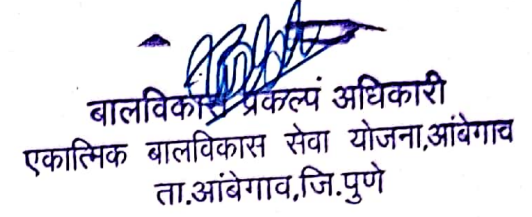 बालविकास प्रकल्प अधिकारी
एकात्मिक बालविकास सेवा योजना,आंबेगाव
ता.आंबेगाव,जि.पुणे